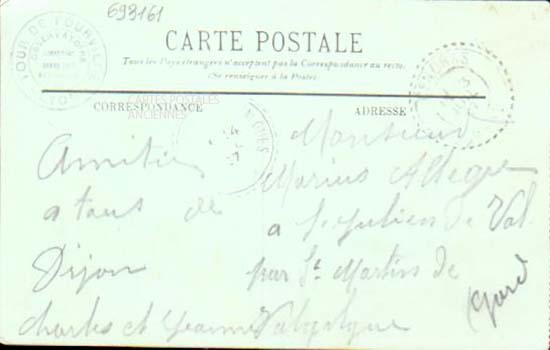 693161
TOUR DE FOURVIÈRE
OBSERVATOIRE
LYON
CARTE POSTALE
Tous les Pays étrangers n'acceptent pas la Correspondance au recto.
(Se renseigner à la Poste).
CORRESPONDANCE
ADRESSE
CARTES POSTALES
ANCIENNES
Amitiés
a tous de
Dijon
Charles et Jeanne
Monsieur
Marius Allegre
a St Julien de Val
par St Martin de
Valgalgue
(Gard)